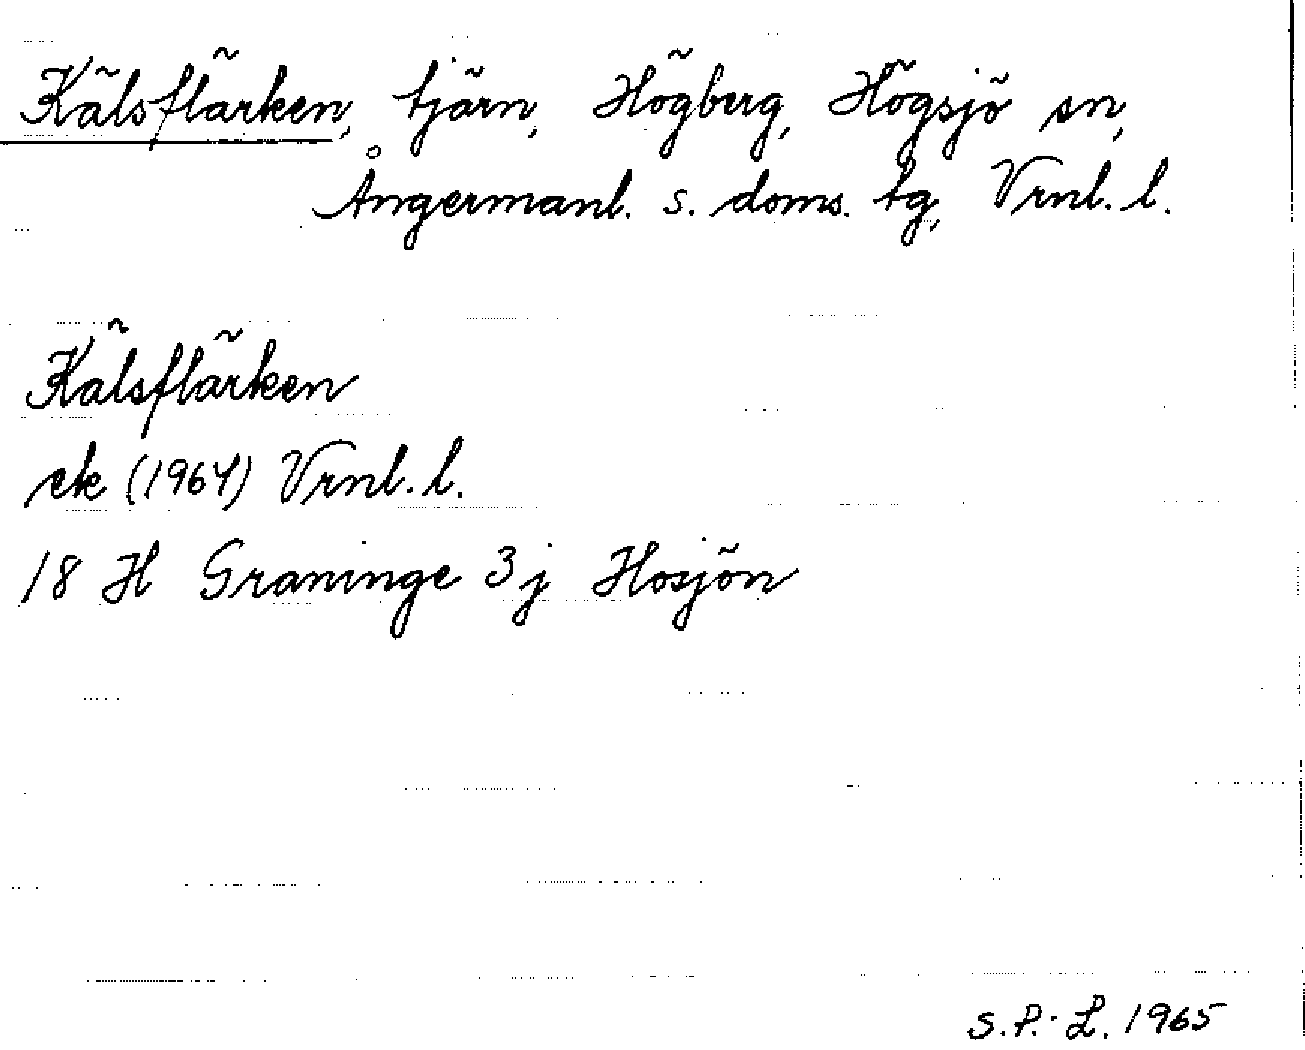 Kälsflärken, tjärn, Högberg, Högsjö sn,
Ångermanl. s. doms. tg, Vrnl. l.
Kälsflärken
ek (1964) Vrnl. l.
18 H Graninge 3 j Hosjön
S. P. L. 1965